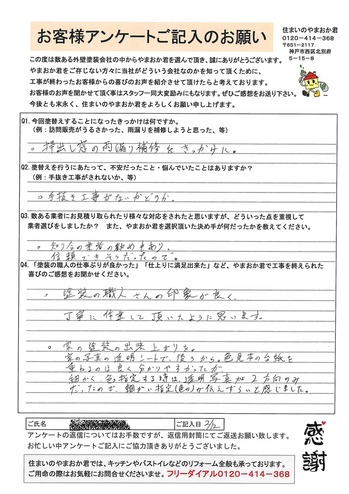 お客様アンケートご記入のお願い
住まいのやまおか君
0120-414-368
〒651-2117
神戸市西区北別府
5-15-8
この度は数ある外壁塗装会社の中からやまおか君を選んで頂き、誠にありがとうございます。
やまおか君をご存じない方々に当社がどういう会社なのかを知って頂くために、
工事が終わったお客様からの喜びのお声を紹介させて頂けたらと考えております。
お客様のお声を聞かせて頂く事はスタッフ一同大変励みにもなります。ぜひご感想をお送り下さい。
今後とも末永く、住まいのやまおか君をよろしくお願い申し上げます。
Q1. 今回塗替えすることになったきっかけは何ですか。
(例:訪問販売がうるさかった、雨漏りを補修しようと思った、等)
○ 掃出し窓の雨漏り補修をきっかけに。
Q2. 塗替えを行うにあたって、不安だったこと・悩んでいたことはありますか?
(例:手抜き工事がされないか、等)
○ 手抜き工事がないかどうか。
Q3. 数ある業者にお見積り取られたり様々な対応をされたと思いますが、どういった点を重視して
業者選びをしましたか? また、やまおか君を選択頂いた決め手が何だったかを教えてください。
○ 知り合の業者の勧めもあり、
信頼できそうだったので。
Q4.「塗装の職人の仕事ぶりが良かった」「仕上りに満足出来た」など、やまおか君で工事を終えられた
喜びのご感想をお聞かせください。
○ 塗装の職人さんの印象が良く、
丁寧に作業して頂いたように思います。
○ 家の塗装の出来上りを。
家の写真の透明シートで、後ろから色見本の台紙を
重ねるのは良く分かりやすかったが
細かく色指定する時は、透明写真が2方向のみ
だったので、細かい指定(色の)がしんずらいと感じました。
ご氏名
ご記入日 2/12
アンケートの返信についてはお手数ですが、返信用封筒にてご返送お願い致します。
お忙しい中アンケートにご協力頂きありがとうございました。
感謝
住まいのやまおか君では、キッチンやバストイレなどのリフォーム全般も承っております。
ご用命の際はお気軽にお問合せくださいませ。フリーダイアル0120-414-368